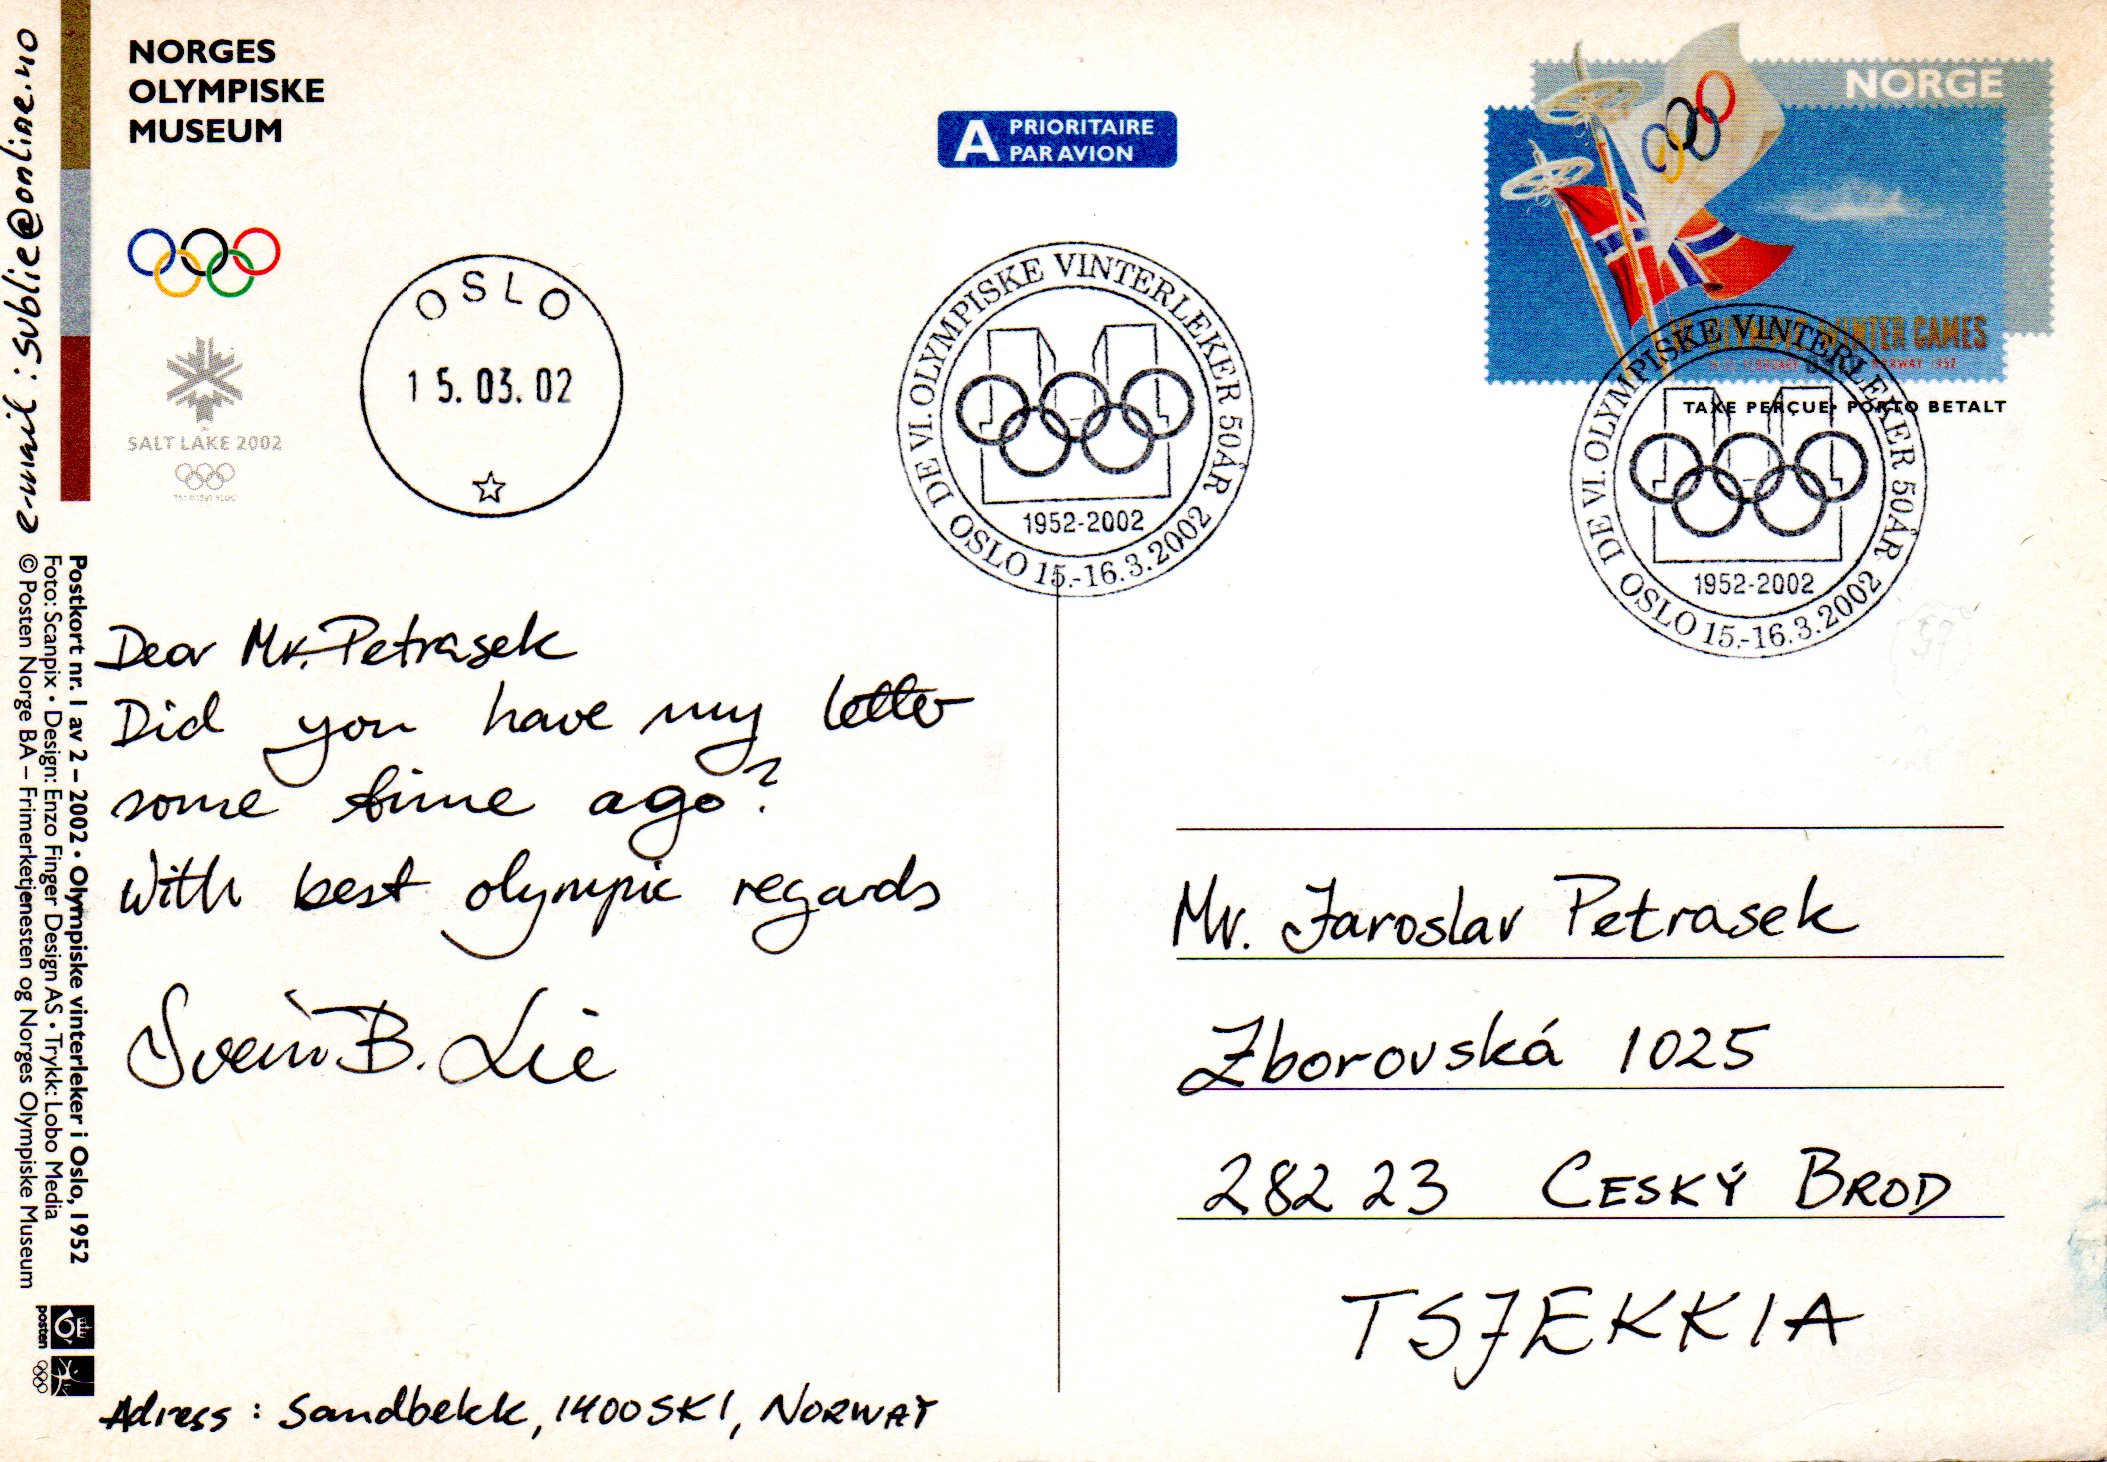 NORGES
OLYMPISKE
MUSEUM
SALT LAKE 2002
A PRIORITAIRE
PAR AVION
NORGE
WINTER GAMES
NORWAY 1952
TAXE PERÇUE • PORTO BETALT
OSLO
15.03.02
DE VI. OLYMPISKE VINTERLEKER 50 ÅR
1952-2002
OSLO 15.-16.3.2002
DE VI. OLYMPISKE VINTERLEKER 50 ÅR
1952-2002
OSLO 15.-16.3.2002
Dear Mr. Petrasek
Did you have my letter
some time ago?
With best olympic regards
Svein B. Lie
Adress : Sandbekk, 1400 SKI, NORWAY
Mr. Jaroslav Petrasek
Zborovská 1025
282 23 CESKÝ BROD
TSJEKKIA
e-mail : svblie@online.no
Postkort nr. 1 av 2 – 2002 • Olympiske vinterleker i Oslo, 1952
Foto: Scanpix • Design: Enzo Finger Design AS • Trykk: Lobo Media
© Posten Norge BA – Frimerketjenesten og Norges Olympiske Museum
posten